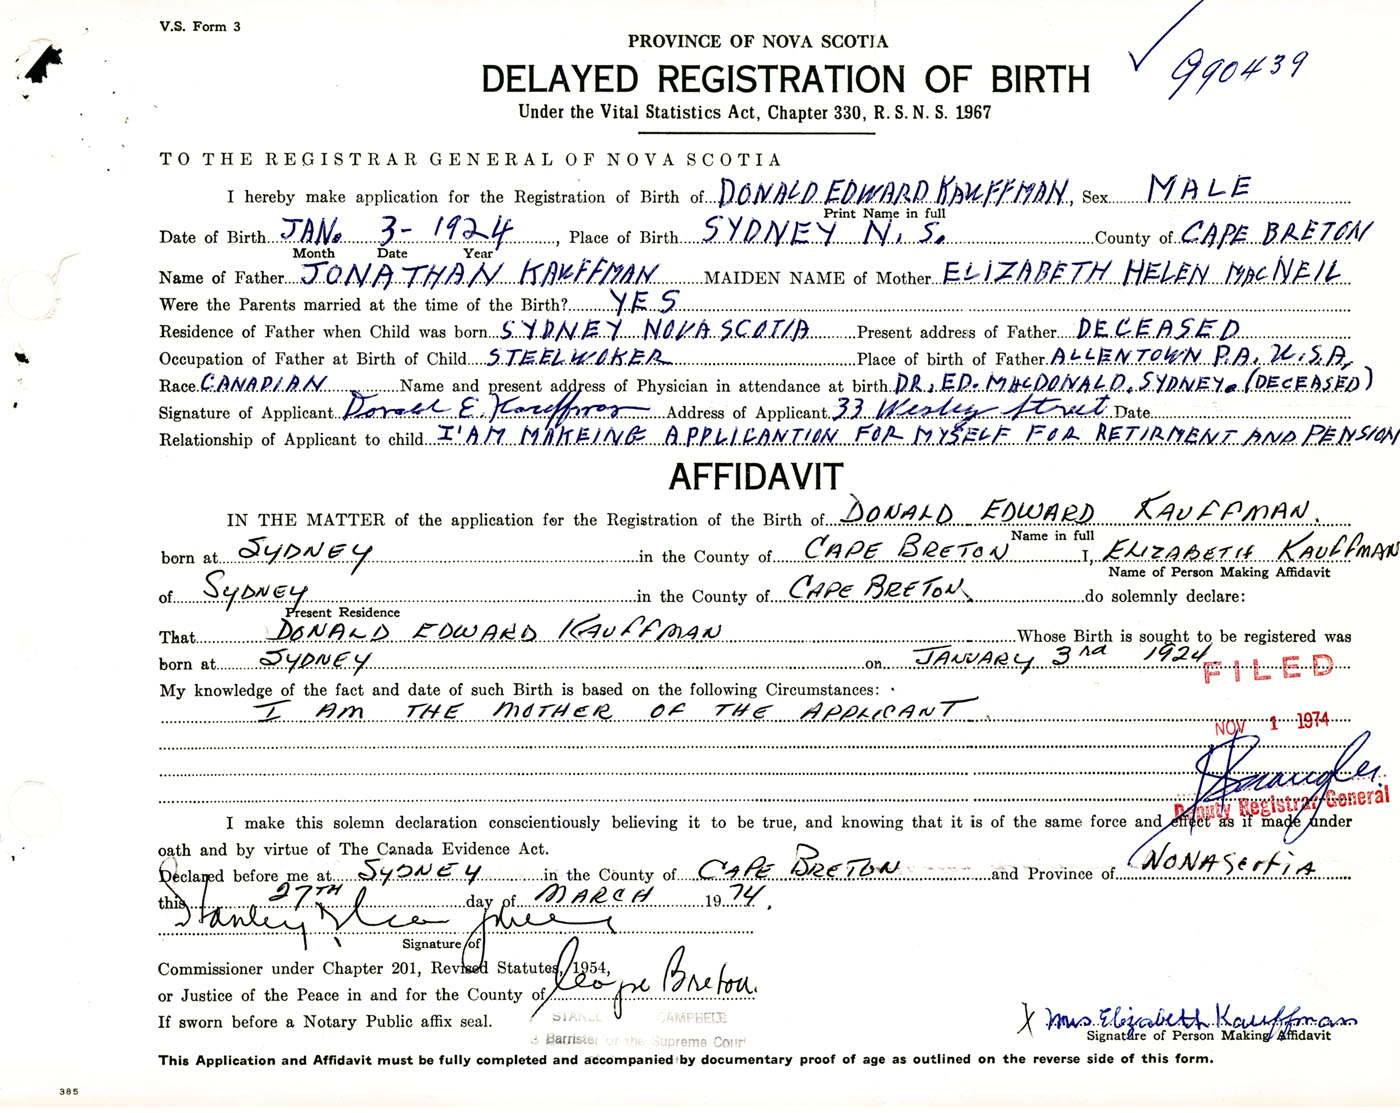 V.S. Form 3
PROVINCE OF NOVA SCOTIA
990439
DELAYED REGISTRATION OF BIRTH
Under the Vital Statistics Act, Chapter 330, R.S.N.S. 1967
TO THE REGISTRAR GENERAL OF NOVA SCOTIA
I hereby make application for the Registration of Birth of DONALD EDWARD KAUFFMAN, Sex MALE
Print Name in full
Date of Birth JAN. 3- 1924, Place of Birth SYDNEY N.S. County of CAPE BRETON
Month Date Year
Name of Father JONATHAN KAUFFMAN MAIDEN NAME of Mother ELIZABETH HELEN MACNEIL
Were the Parents married at the time of the Birth? YES
Residence of Father when Child was born SYDNEY NOVA SCOTIA Present address of Father DECEASED
Occupation of Father at Birth of Child STEELWOKER Place of birth of Father ALLENTOWN P.A. U.S.A,
Race CANADIAN Name and present address of Physician in attendance at birth DR. ED. MACDONALD. SYDNEY. (DECEASED)
Signature of Applicant Donald E. Kauffman Address of Applicant 33 Wesley Street Date
Relationship of Applicant to child I'AM MAKEING APPLICANTION FOR MYSELF FOR RETIRMENT AND PENSION
AFFIDAVIT
IN THE MATTER of the application for the Registration of the Birth of DONALD EDWARD KAUFFMAN.
Name in full
born at SYDNEY in the County of CAPE BRETON I, ELIZABETH KAUFFMAN
Name of Person Making Affidavit
of SYDNEY in the County of CAPE BRETON do solemnly declare:
Present Residence
That DONALD EDWARD KAUFFMAN Whose Birth is sought to be registered was
born at SYDNEY on JANUARY 3rd 1924
FILED
My knowledge of the fact and date of such Birth is based on the following Circumstances:
I AM THE MOTHER OF THE APPLICANT
NOV 1 1974
Deputy Registrar General
I make this solemn declaration conscientiously believing it to be true, and knowing that it is of the same force and effect as if made under
oath and by virtue of The Canada Evidence Act.
Declared before me at SYDNEY in the County of CAPE BRETON and Province of NOVA SCOTIA
this 27TH day of MARCH 1974.
Stanley
Signature of
Commissioner under Chapter 201, Revised Statutes, 1954,
or Justice of the Peace in and for the County of Cape Breton.
If sworn before a Notary Public affix seal.
CAMPBELL
Barrister of the Supreme Court
X Mrs Elizabeth Kauffman
Signature of Person Making Affidavit
This Application and Affidavit must be fully completed and accompanied by documentary proof of age as outlined on the reverse side of this form.
385